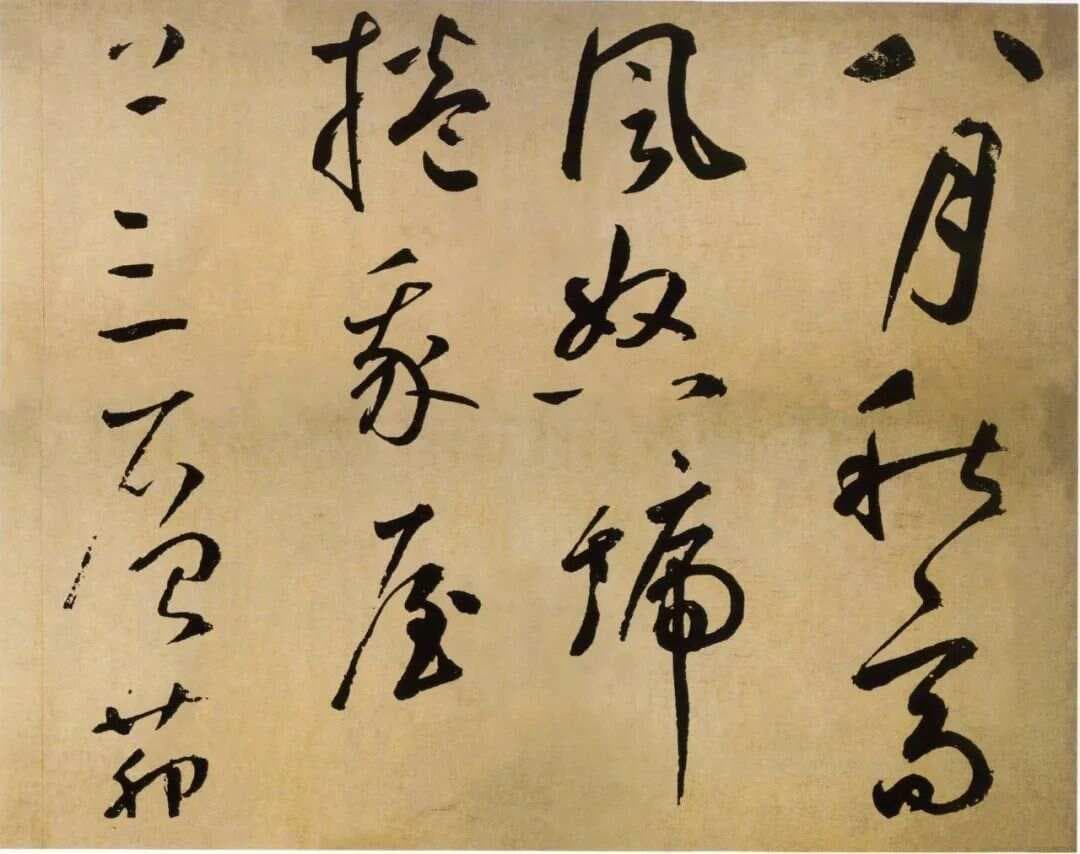 八月秋高
風怒號
捲我屋
上三層茆